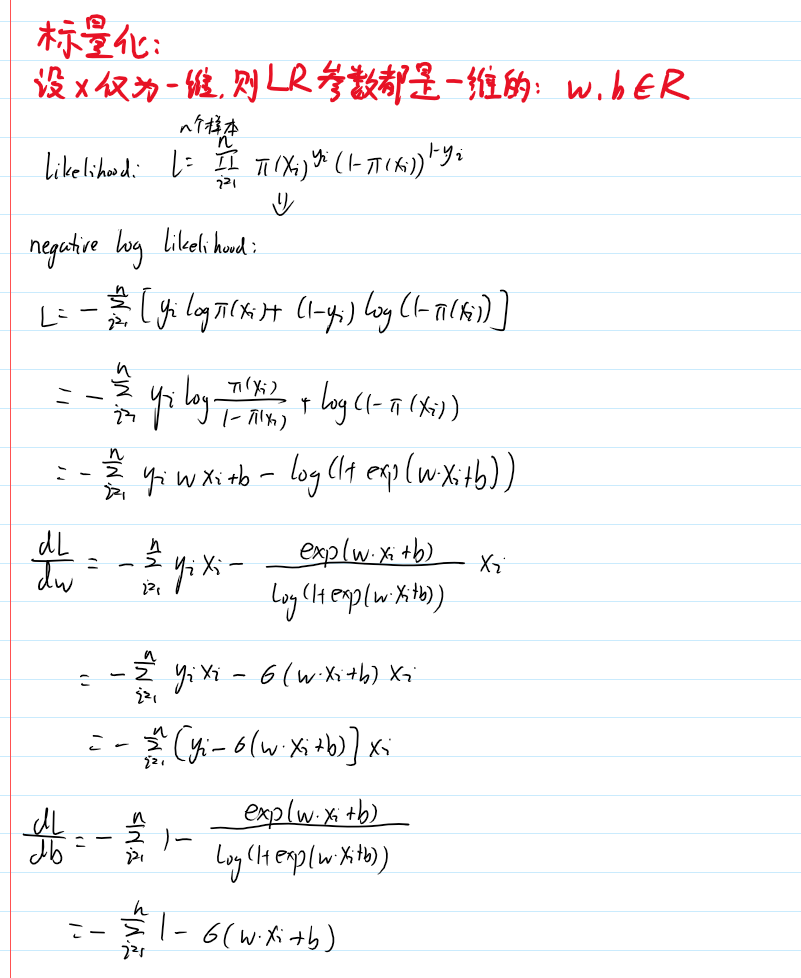 标量化:
设x仅为一维,则LR参数都是一维的: w.b∈R
n个样本
Likelihood: L = ∏_{i=1}^{n} π(xᵢ)^{yᵢ} (1-π(xᵢ))^{1-yᵢ}
⇓
negative log likelihood:
L = -∑_{i=1}^{n} [yᵢ log π(xᵢ) + (1-yᵢ) log(1-π(xᵢ))]
= -∑_{i=1}^{n} yᵢ log \frac{π(xᵢ)}{1-π(xᵢ)} + log(1-π(xᵢ))
= -∑_{i=1}^{n} yᵢ w xᵢ+b - log(1+exp(w·xᵢ+b))
\frac{dL}{dw} = -∑_{i=1}^{n} yᵢxᵢ - \frac{exp(w·xᵢ+b)}{log(1+exp(w·xᵢ+b))} xᵢ
= -∑_{i=1}^{n} yᵢxᵢ - σ(w·xᵢ+b) xᵢ
= -∑_{i=1}^{n} [yᵢ-σ(w·xᵢ+b)] xᵢ
\frac{dL}{db} = -∑_{i=1}^{n} 1 - \frac{exp(w·xᵢ+b)}{log(1+exp(w·xᵢ+b))}
= -∑_{i=1}^{n} 1 - σ(w·xᵢ+b)